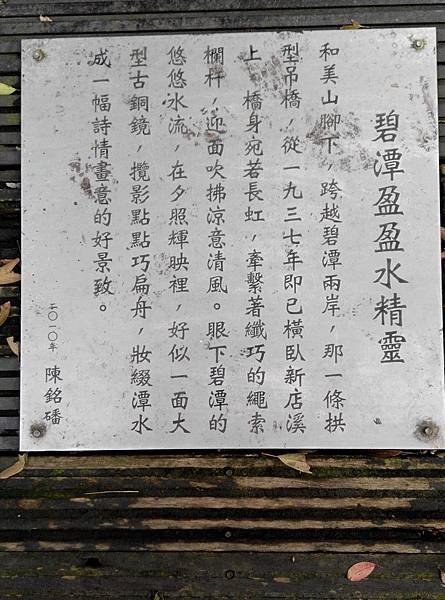 碧潭盈盈水精靈
和美山腳下，跨越碧潭兩岸，那一條拱
型吊橋，從一九三七年即已橫臥新店溪
上，橋身宛若長虹，牽繫著纖巧的繩索
欄杆，迎面吹拂涼意清風。眼下碧潭的
悠悠水流，在夕照輝映裡，好似一面大
型古銅鏡，攬影點點巧扁舟，妝綴潭水
成一幅詩情畫意的好景致。
二〇一〇年 陳銘磻